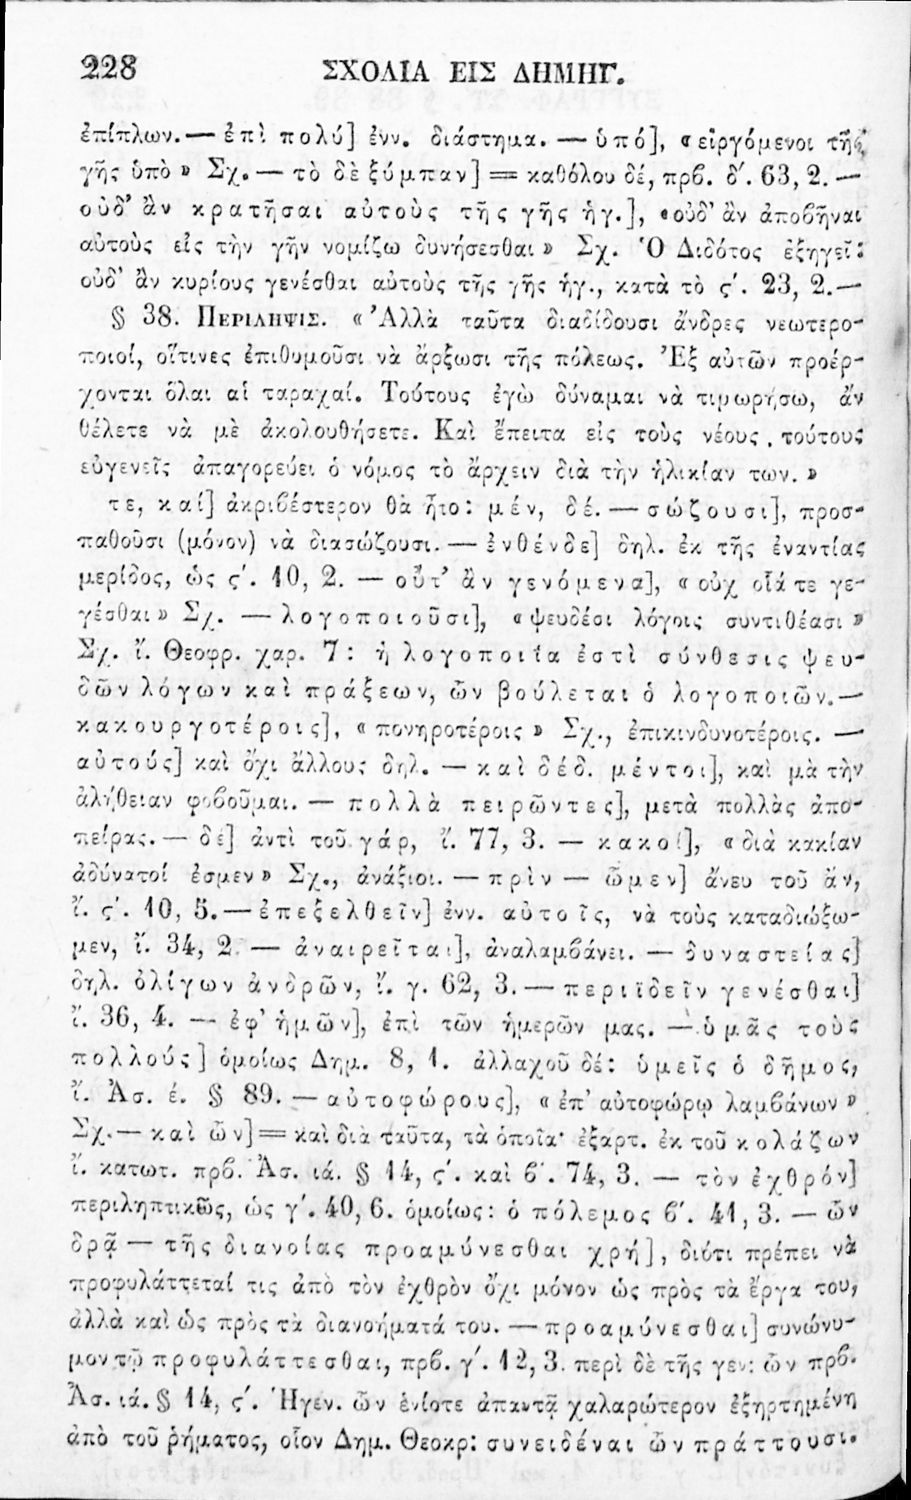 228 ΣΧΟΛΙΑ ΕΙΣ ΔΗΜΗΓ.
ἐπίπλων. — ἐπὶ πολύ] ἐνν. διάστημα. — ὑπό], «εἰργόμενοι τῆς
γῆς ὑπὸ» Σχ. — τὸ δὲ ξύμπαν] = καθόλου δέ, πρβ. δ΄. 63, 2. —
οὐδ' ἂν κρατῆσαι αὐτοὺς τῆς γῆς ἡγ.], «οὐδ' ἂν ἀποβῆναι
αὐτοὺς εἰς τὴν γῆν νομίζω δυνήσεσθαι» Σχ. Ὁ Διδότος ἐξηγεῖ:
οὐδ' ἂν κυρίους γενέσθαι αὐτοὺς τῆς γῆς ἡγ., κατὰ τὸ ς΄. 23, 2. —
§ 38. ΠΕΡΙΛΗΨΙΣ. «Ἀλλὰ ταῦτα διαδίδουσι ἄνδρες νεωτερο-
ποιοί, οἵτινες ἐπιθυμοῦσι νὰ ἄρξωσι τῆς πόλεως. Ἐξ αὐτῶν προέρ-
χονται ὅλαι αἱ ταραχαί. Τούτους ἐγὼ δύναμαι νὰ τιμωρήσω, ἄν
θέλετε νὰ μὲ ἀκολουθήσετε. Καὶ ἔπειτα εἰς τοὺς νέους τούτους
εὐγενεῖς ἀπαγορεύει ὁ νόμος τὸ ἄρχειν διὰ τὴν ἡλικίαν των.»
τε, καί] ἀκριβέστερον θὰ ἦτο: μέν, δέ. — σώζουσι], προσ-
παθοῦσι (μόνον) νὰ διασώζουσι. — ἐνθένδε] δηλ. ἐκ τῆς ἐναντίας
μερίδος, ὡς ς΄. 10, 2. — οὔτ' ἂν γενόμενα], «οὐχ οἷά τε γε-
γέσθαι» Σχ. — λογοποιοῦσι], «ψευδέσι λόγοις συντιθέασι»
Σχ. ἴ. Θεοφρ. χαρ. 7: ἡ λογοποιΐα ἐστὶ σύνθεσις ψευ-
δῶν λόγων καὶ πράξεων, ὧν βούλεται ὁ λογοποιῶν. —
κακουργοτέροις], «πονηροτέροις» Σχ., ἐπικινδυνοτέροις. —
αὐτούς] καὶ ὄχι ἄλλους δηλ. — καὶ δέδ. μέντοι], καὶ μὰ τὴν
ἀλήθειαν φοβοῦμαι. — πολλὰ πειρῶντες], μετὰ πολλὰς ἀπο-
πείρας. — δέ] ἀντὶ τοῦ γάρ, ἴ. 77, 3. — κακοί], «διὰ κακίαν
ἀδύνατοί ἐσμεν» Σχ., ἀνάξιοι. — πρὶν — ὦμεν] ἄνευ τοῦ ἄν,
ἴ. ς΄. 10, 5. — ἐπεξελθεῖν] ἐνν. αὐτοῖς, νὰ τοὺς καταδιώξω-
μεν, ἴ. 34, 2. — ἀναιρεῖται], ἀναλαμβάνει. — δυναστείας]
δηλ. ὀλίγων ἀνδρῶν, ἴ. γ. 62, 3. — περιϊδεῖν γενέσθαι]
ἴ. 36, 4. — ἐφ' ἡμῶν], ἐπὶ τῶν ἡμερῶν μας. — ὑμᾶς τοὺς
πολλούς] ὁμοίως Δημ. 8, 1. ἀλλαχοῦ δέ: ὑμεῖς ὁ δῆμος,
ἴ. Ἀσ. έ. § 89. — αὐτοφώρους], «ἐπ' αὐτοφώρῳ λαμβάνων»
Σχ. — καὶ ὧν] = καὶ διὰ ταῦτα, τὰ ὁποῖα· ἐξαρτ. ἐκ τοῦ κολάζων
ἴ. κατωτ. πρβ. Ἀσ. ιά. § 14, ς΄. καὶ β΄. 74, 3. — τὸν ἐχθρόν]
περιληπτικῶς, ὡς γ΄. 40, 6. ὁμοίως: ὁ πόλεμος β΄. 41, 3. — ὧν
δρᾷ — τῆς διανοίας προαμύνεσθαι χρή], διότι πρέπει νὰ
προφυλάττεταί τις ἀπὸ τὸν ἐχθρὸν ὄχι μόνον ὡς πρὸς τὰ ἔργα του,
ἀλλὰ καὶ ὡς πρὸς τὰ διανοήματά του. — προαμύνεσθαι] συνώνυ-
μον τῷ προφυλάττεσθαι, πρβ. γ΄. 12, 3. περὶ δὲ τῆς γεν: ὧν πρβ.
Ἀσ. ιά. § 14, ς΄. Ἡ γεν. ὧν ἐνίοτε ἀπαντᾷ χαλαρώτερον ἐξηρτημένη
ἀπὸ τοῦ ῥήματος, οἷον Δημ. Θεοκρ: συνειδέναι ὧν πράττουσι.